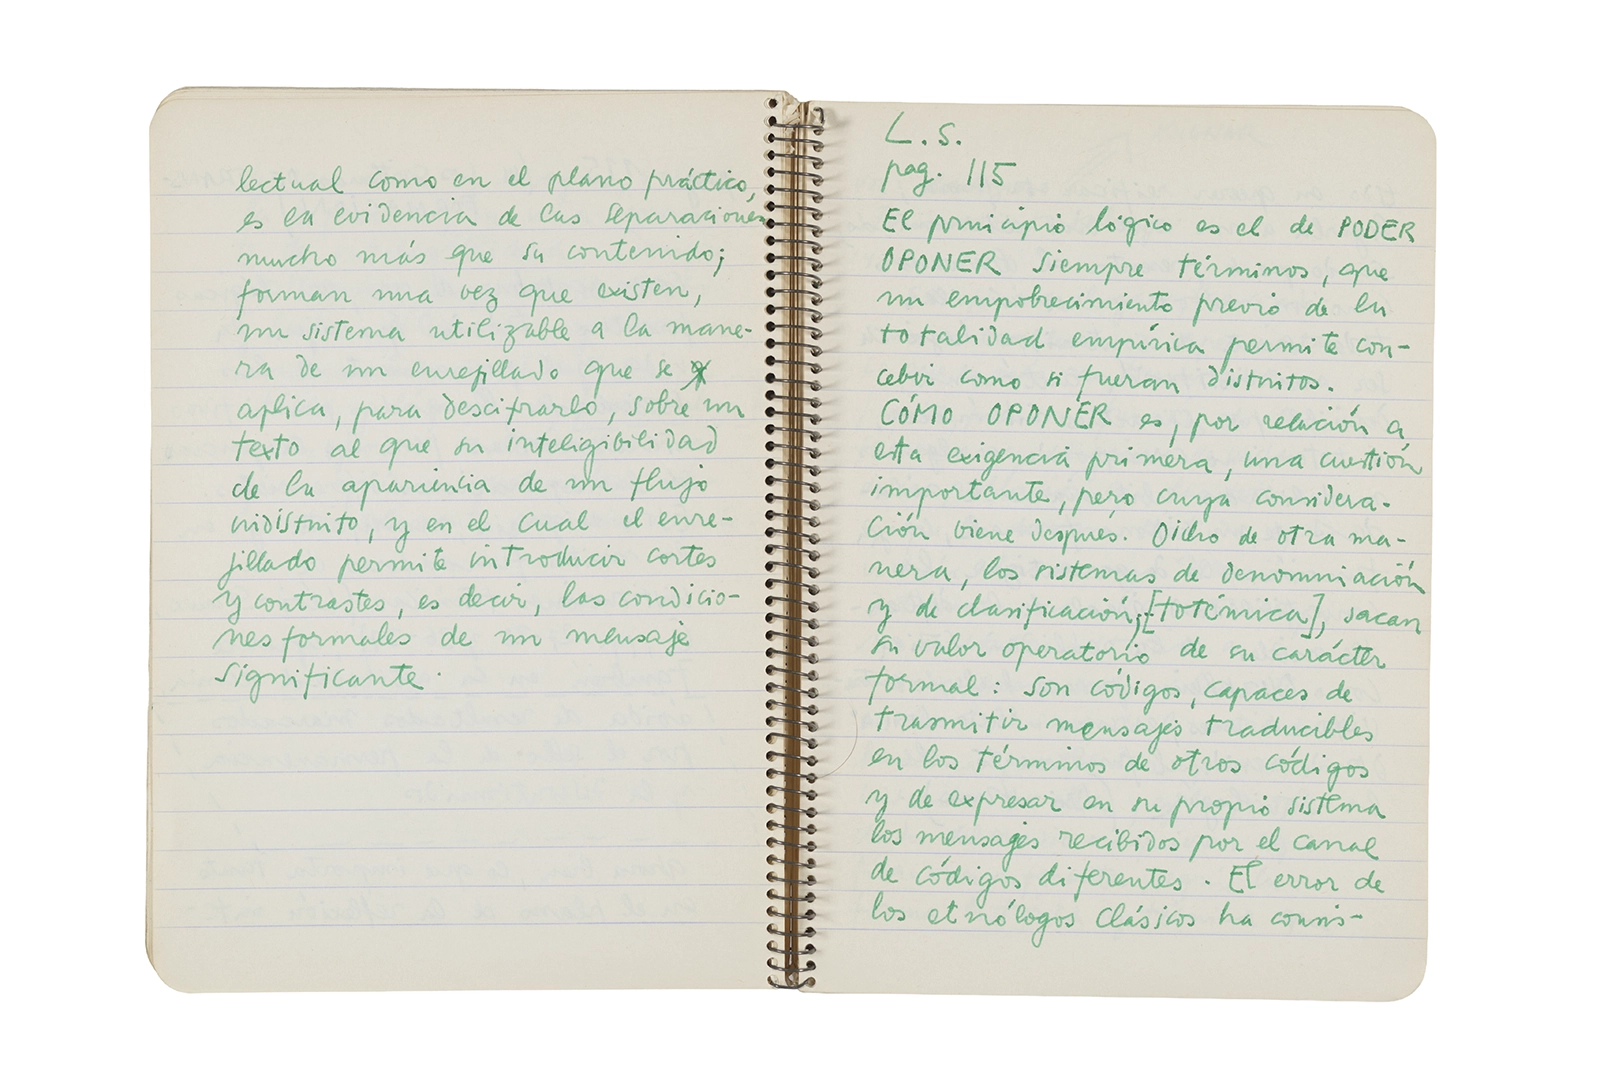 lectual como en el plano práctico,
es la evidencia de las separaciones
mucho más que su contenido;
forman una vez que existen,
un sistema utilizable a la mane-
ra de un enrejillado que se
aplica, para descifrarlo, sobre un
texto al que su inteligibilidad
de la apariencia de un flujo
indistinto, y en el cual el enre-
jillado permite introducir cortes
y contrastes, es decir, las condicio-
nes formales de un mensaje
significante.
L.S.
pag. 115
El principio lógico es el de PODER
OPONER siempre términos, que
un empobrecimiento previo de la
totalidad empírica permite con-
cebir como si fueran distintos.
CÓMO OPONER es, por relación a
esta exigencia primera, una cuestión
importante, pero cuya considera-
ción viene después. Dicho de otra ma-
nera, los sistemas de denominación
y de clasificación, [totémica], sacan
su valor operatorio de su carácter
formal: son códigos, capaces de
trasmitir mensajes traducibles
en los términos de otros códigos
y de expresar en su propio sistema
los mensajes recibidos por el canal
de códigos diferentes. El error de
los etnólogos clásicos ha consis-